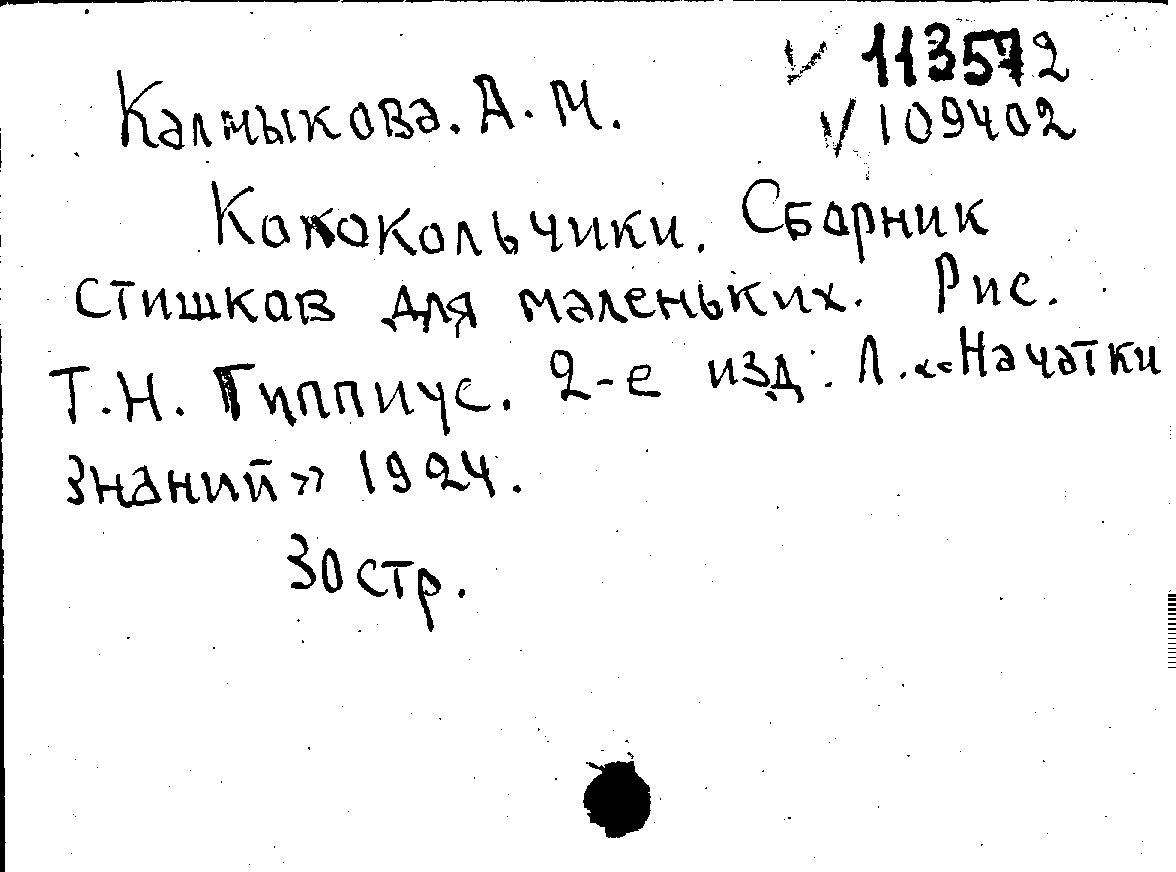 ✓ 113572
Калмыкова. А. М.
✓ 109402
Колокольчики. Сборник
стишков для маленьких. Рис.
Т.Н. Гиппиус. 2-е изд. Л. «Начатки
знаний» 1924.
30 стр.